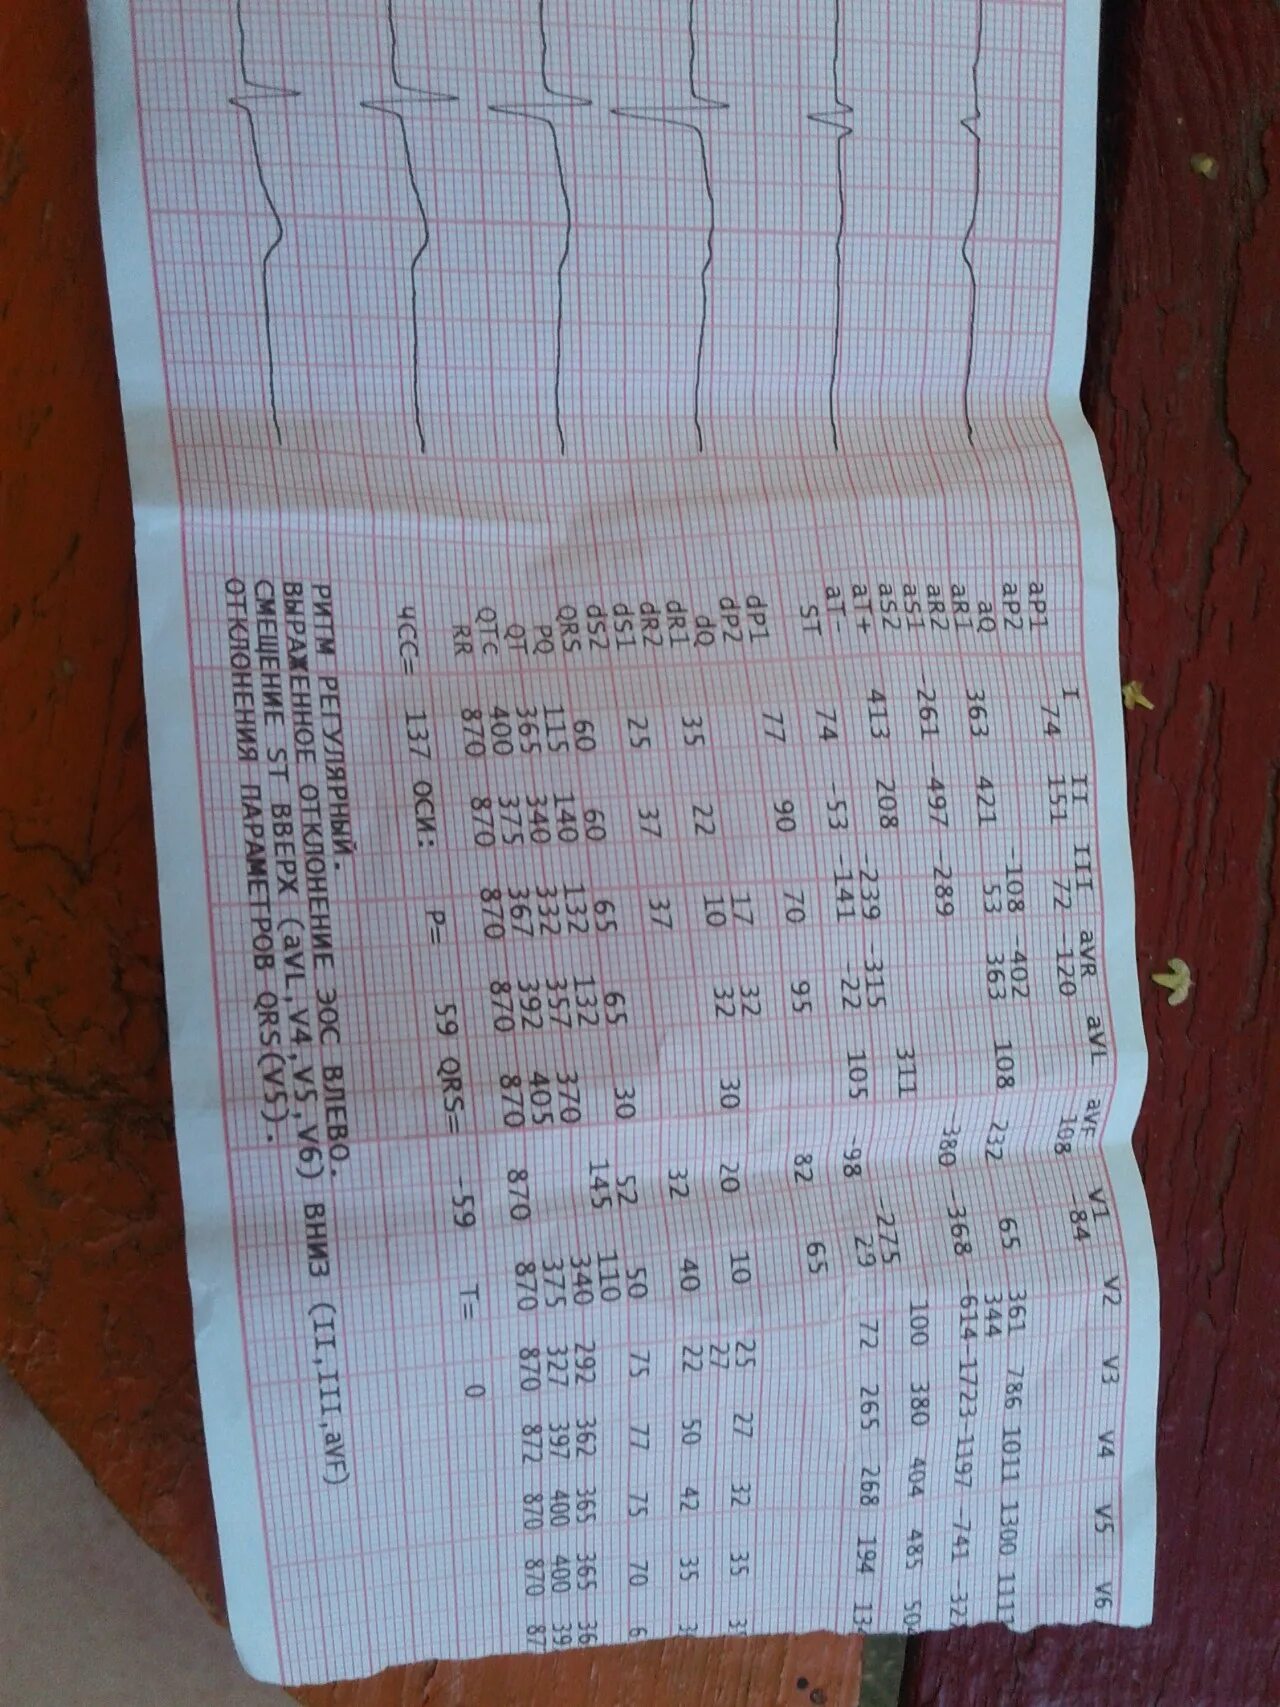 I II III aVR aVL aVF V1 V2 V3 V4 V5 V6
aP1 74 151 72 -120 108 -84
aP2
aQ -108 -402
aR1 363 421 53 363 108 232 65 361 786 1011 1300 1111
aR2 344
aS1 -261 -497 -289 -380 -368 -614 -1723 -1197 -741 -32
aS2
aT+ 413 208 311 100 380 404 485 504
aT- -239 -315 -275
ST 74 -53 -141 -22 105 -98 29 72 265 268 194 134
dP1 77 90 70 95 82 65
dP2
dQ 17 32
dR1 35 22 10 32 30 20 10 25 27 32 35
dR2 27
dS1 25 37 37 32 40 22 50 42 35
dS2
QRS 60 60 65 65 30 52 50 75 77 75 70 6
PQ 115 140 132 132 145 110
QT 365 340 332 357 370 340 292 362 365 365 36
QTc 400 375 367 392 405 375 327 397 400 400 39
RR 870 870 870 870 870 870 870 870 872 870 870 87
ЧСС= 137 ОСИ: P= 59 QRS= -59 T= 0
РИТМ РЕГУЛЯРНЫЙ.
ВЫРАЖЕННОЕ ОТКЛОНЕНИЕ ЭОС ВЛЕВО.
СМЕЩЕНИЕ ST ВВЕРХ (aVL,V4,V5,V6) ВНИЗ (II,III,aVF)
ОТКЛОНЕНИЯ ПАРАМЕТРОВ QRS(V5).